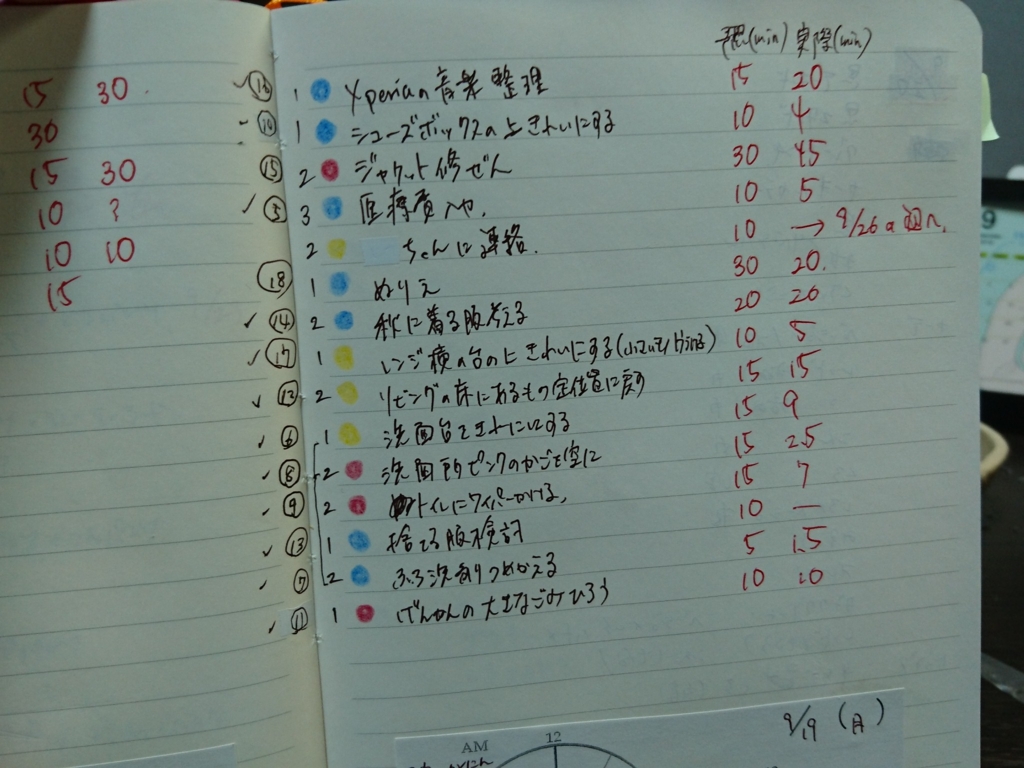 15 30
30
15 30
10 ?
10 10
15
予想(min) 実際(min)
1 Xperiaの音楽整理 15 20
1 シューズボックスの上きれいにする 10 4
⑮ 2 ジャケット修ぜん 30 45
✓ 3 医療費 10 5
2 ちゃんに連絡. 10 → 9/26の週へ
⑱ 1 ぬりえ 30 20.
✓ ⑭ 2 秋に着る服考える 20 20
✓ ⑰ 1 レンジ横の台の上きれいにする 10 5
✓ ⑫ 2 リビングの床にあるもの定位置に戻す 15 15
✓ ⑥ 1 洗面台をきれいにする 15 9
✓ ⑧ 2 洗面所ピンクのかごを空に 15 2.5
✓ ⑨ 2 トイレにワイパーかける, 15 7
✓ ⑬ 1 捨てる服検討 10 —
✓ ⑦ 2 ふろ洗剤つめかえる 5 1.5
✓ ⑪ 1 げんかんの大きなごみひろう 10 10
9/19 (月)
AM
12